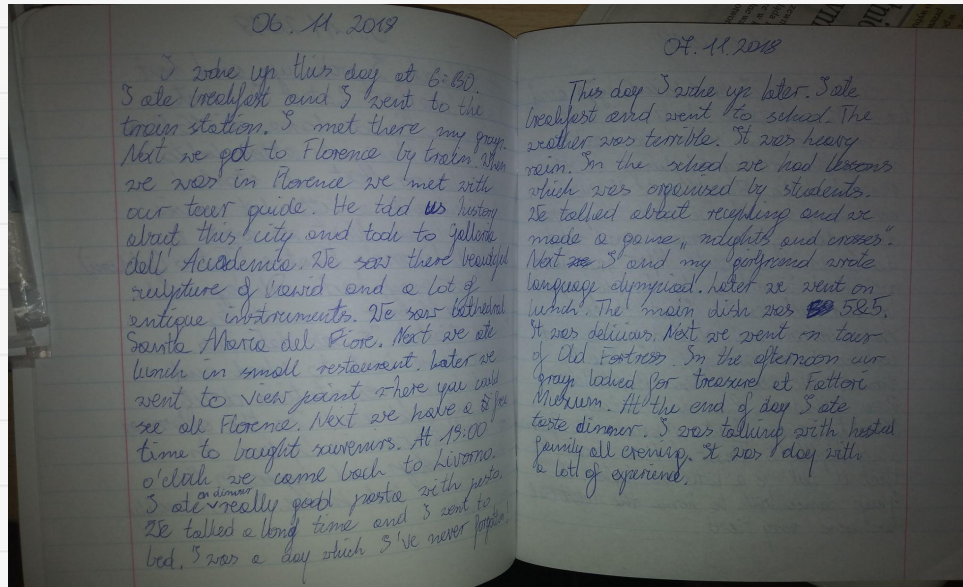 06.11.2018
I woke up this day at 6:30.
I ate breakfast and I went to the
train station. I met there my group.
Next we got to Florence by train. When
we was in Florence we met with
our tour guide. He told us history
about this city and took to Galleria
dell' Accademia. We saw there beautiful
sculpture of Dawid and a lot of
antique instruments. We saw cathedral
Santa Maria del Fiore. Next we ate
lunch in small restaurant. Later we
went to view point where you could
see all Florence. Next we have a free
time to bought souvenirs. At 19:00
o'clock we come back to Livorno.
I ate on dinner really good pasta with pesto.
We talked a long time and I went to
bed. I was a day which I've never forgotten!
07.11.2018
This day I woke up later. I ate
breakfast and went to school. The
weather was terrible. It was heavy
rain. In the school we had lessons
which was organised by students.
We talked about recykling and we
made a game „noughts and crosses".
Next I and my girlfriend wrote
language olympiad. Later we went on
lunch. The main dish was 5&5.
It was delicious. Next we went on tour
of Old Fortress. In the afternoon our
group looked for treasure at Fattori
Museum. At the end of day I ate
taste dinner. I was talking with hosted
family all evening. It was day with
a lot of experience.